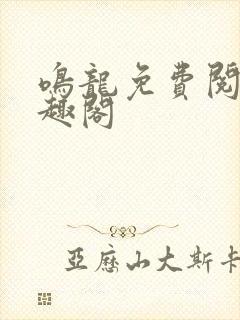 鳴龍免費閱
趣閣
亞歷山大斯卡